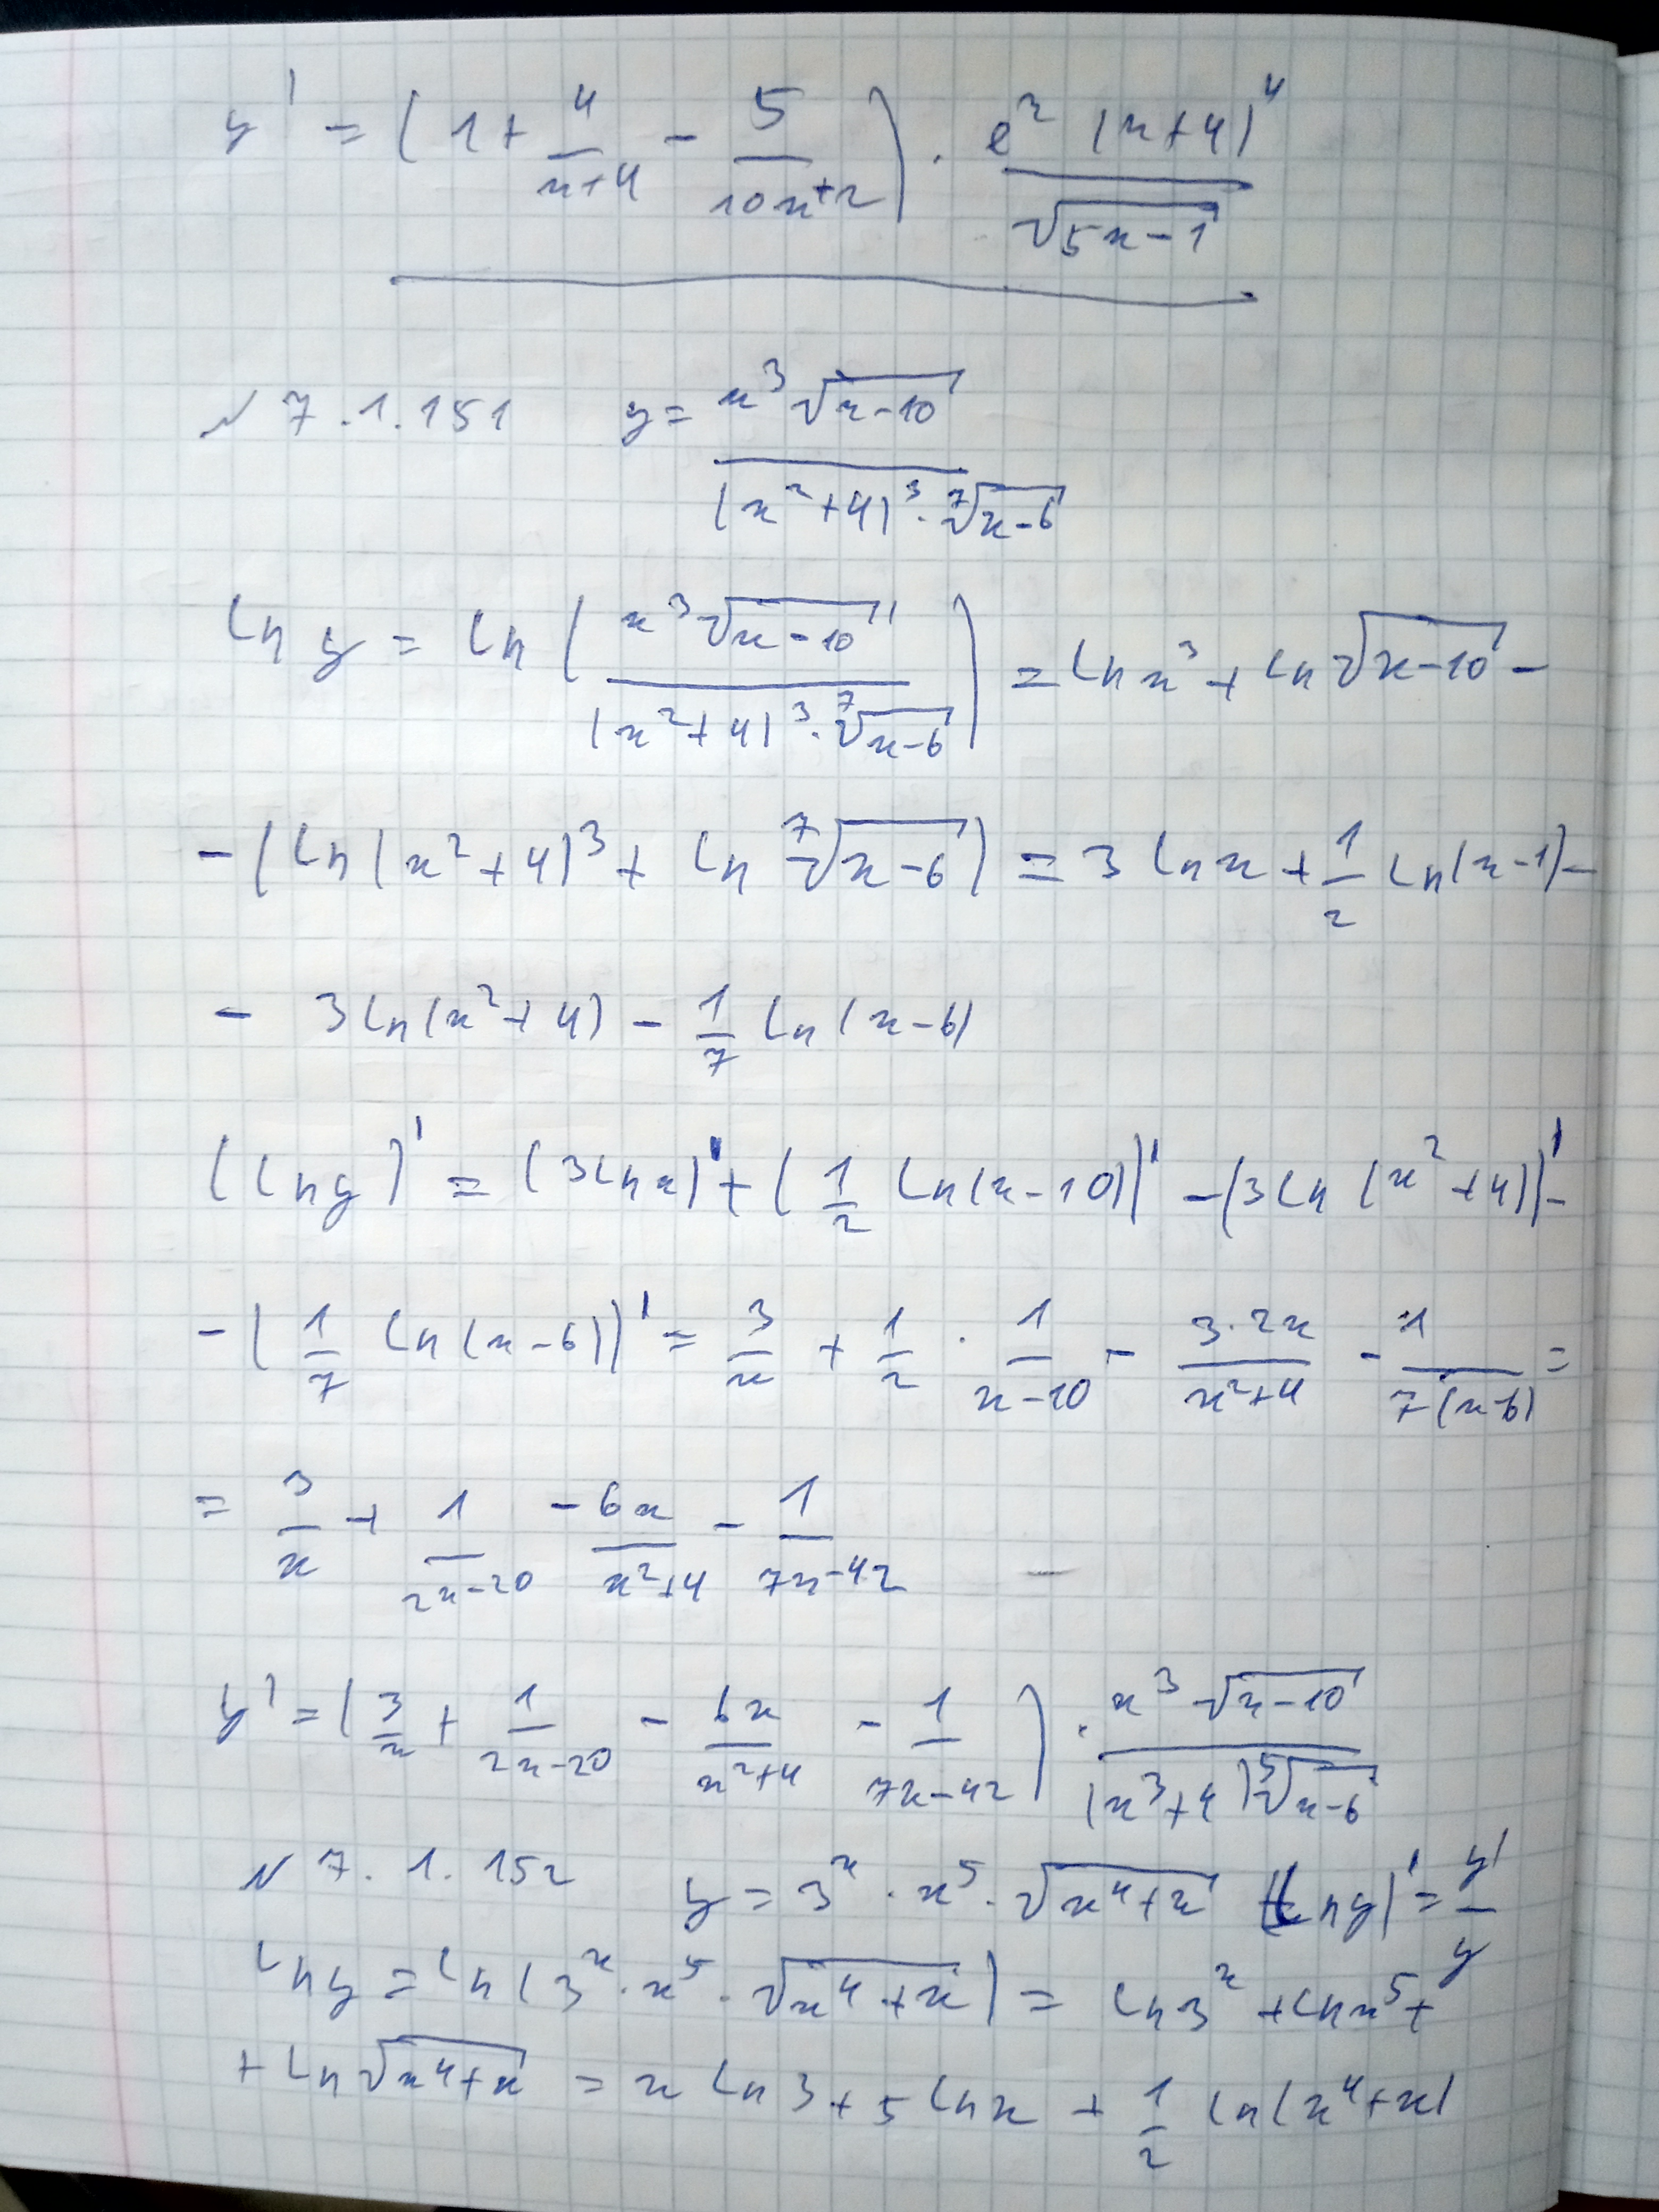 y' = (1 + 4/(x+4) - 5/(10x+2)) · e^2 (x+4)^4 / √(5x-1)
N 7.1.151 y = x^3 √(x-10) / ((x^2+4)^3 · ⁷√(x-6))
ln y = ln (x^3 √(x-10) / ((x^2+4)^3 · ⁷√(x-6))) = ln x^3 + ln √(x-10) -
- (ln (x^2+4)^3 + ln ⁷√(x-6)) = 3 ln x + 1/2 ln(x-1) -
- 3 ln(x^2+4) - 1/7 ln(x-6)
(ln y)' = (3 ln x)' + (1/2 ln(x-10))' - (3 ln (x^2+4))' -
- (1/7 ln(x-6))' = 3/x + 1/2 · 1/(x-10) - 3·2x/(x^2+4) - 1/(7(x-6)) =
= 3/x + 1/(2x-20) - 6x/(x^2+4) - 1/(7x-42)
y' = (3/x + 1/(2x-20) - 6x/(x^2+4) - 1/(7x-42)) · x^3 √(x-10) / ((x^3+4) ⁵√(x-6))
N 7.1.152 y = 3^x · x^5 · √(x^4+x) (ln y)' = y'/y
ln y = ln (3^x · x^5 · √(x^4+x)) = ln 3^x + ln x^5 +
+ ln √(x^4+x) = x ln 3 + 5 ln x + 1/2 ln(x^4+x)